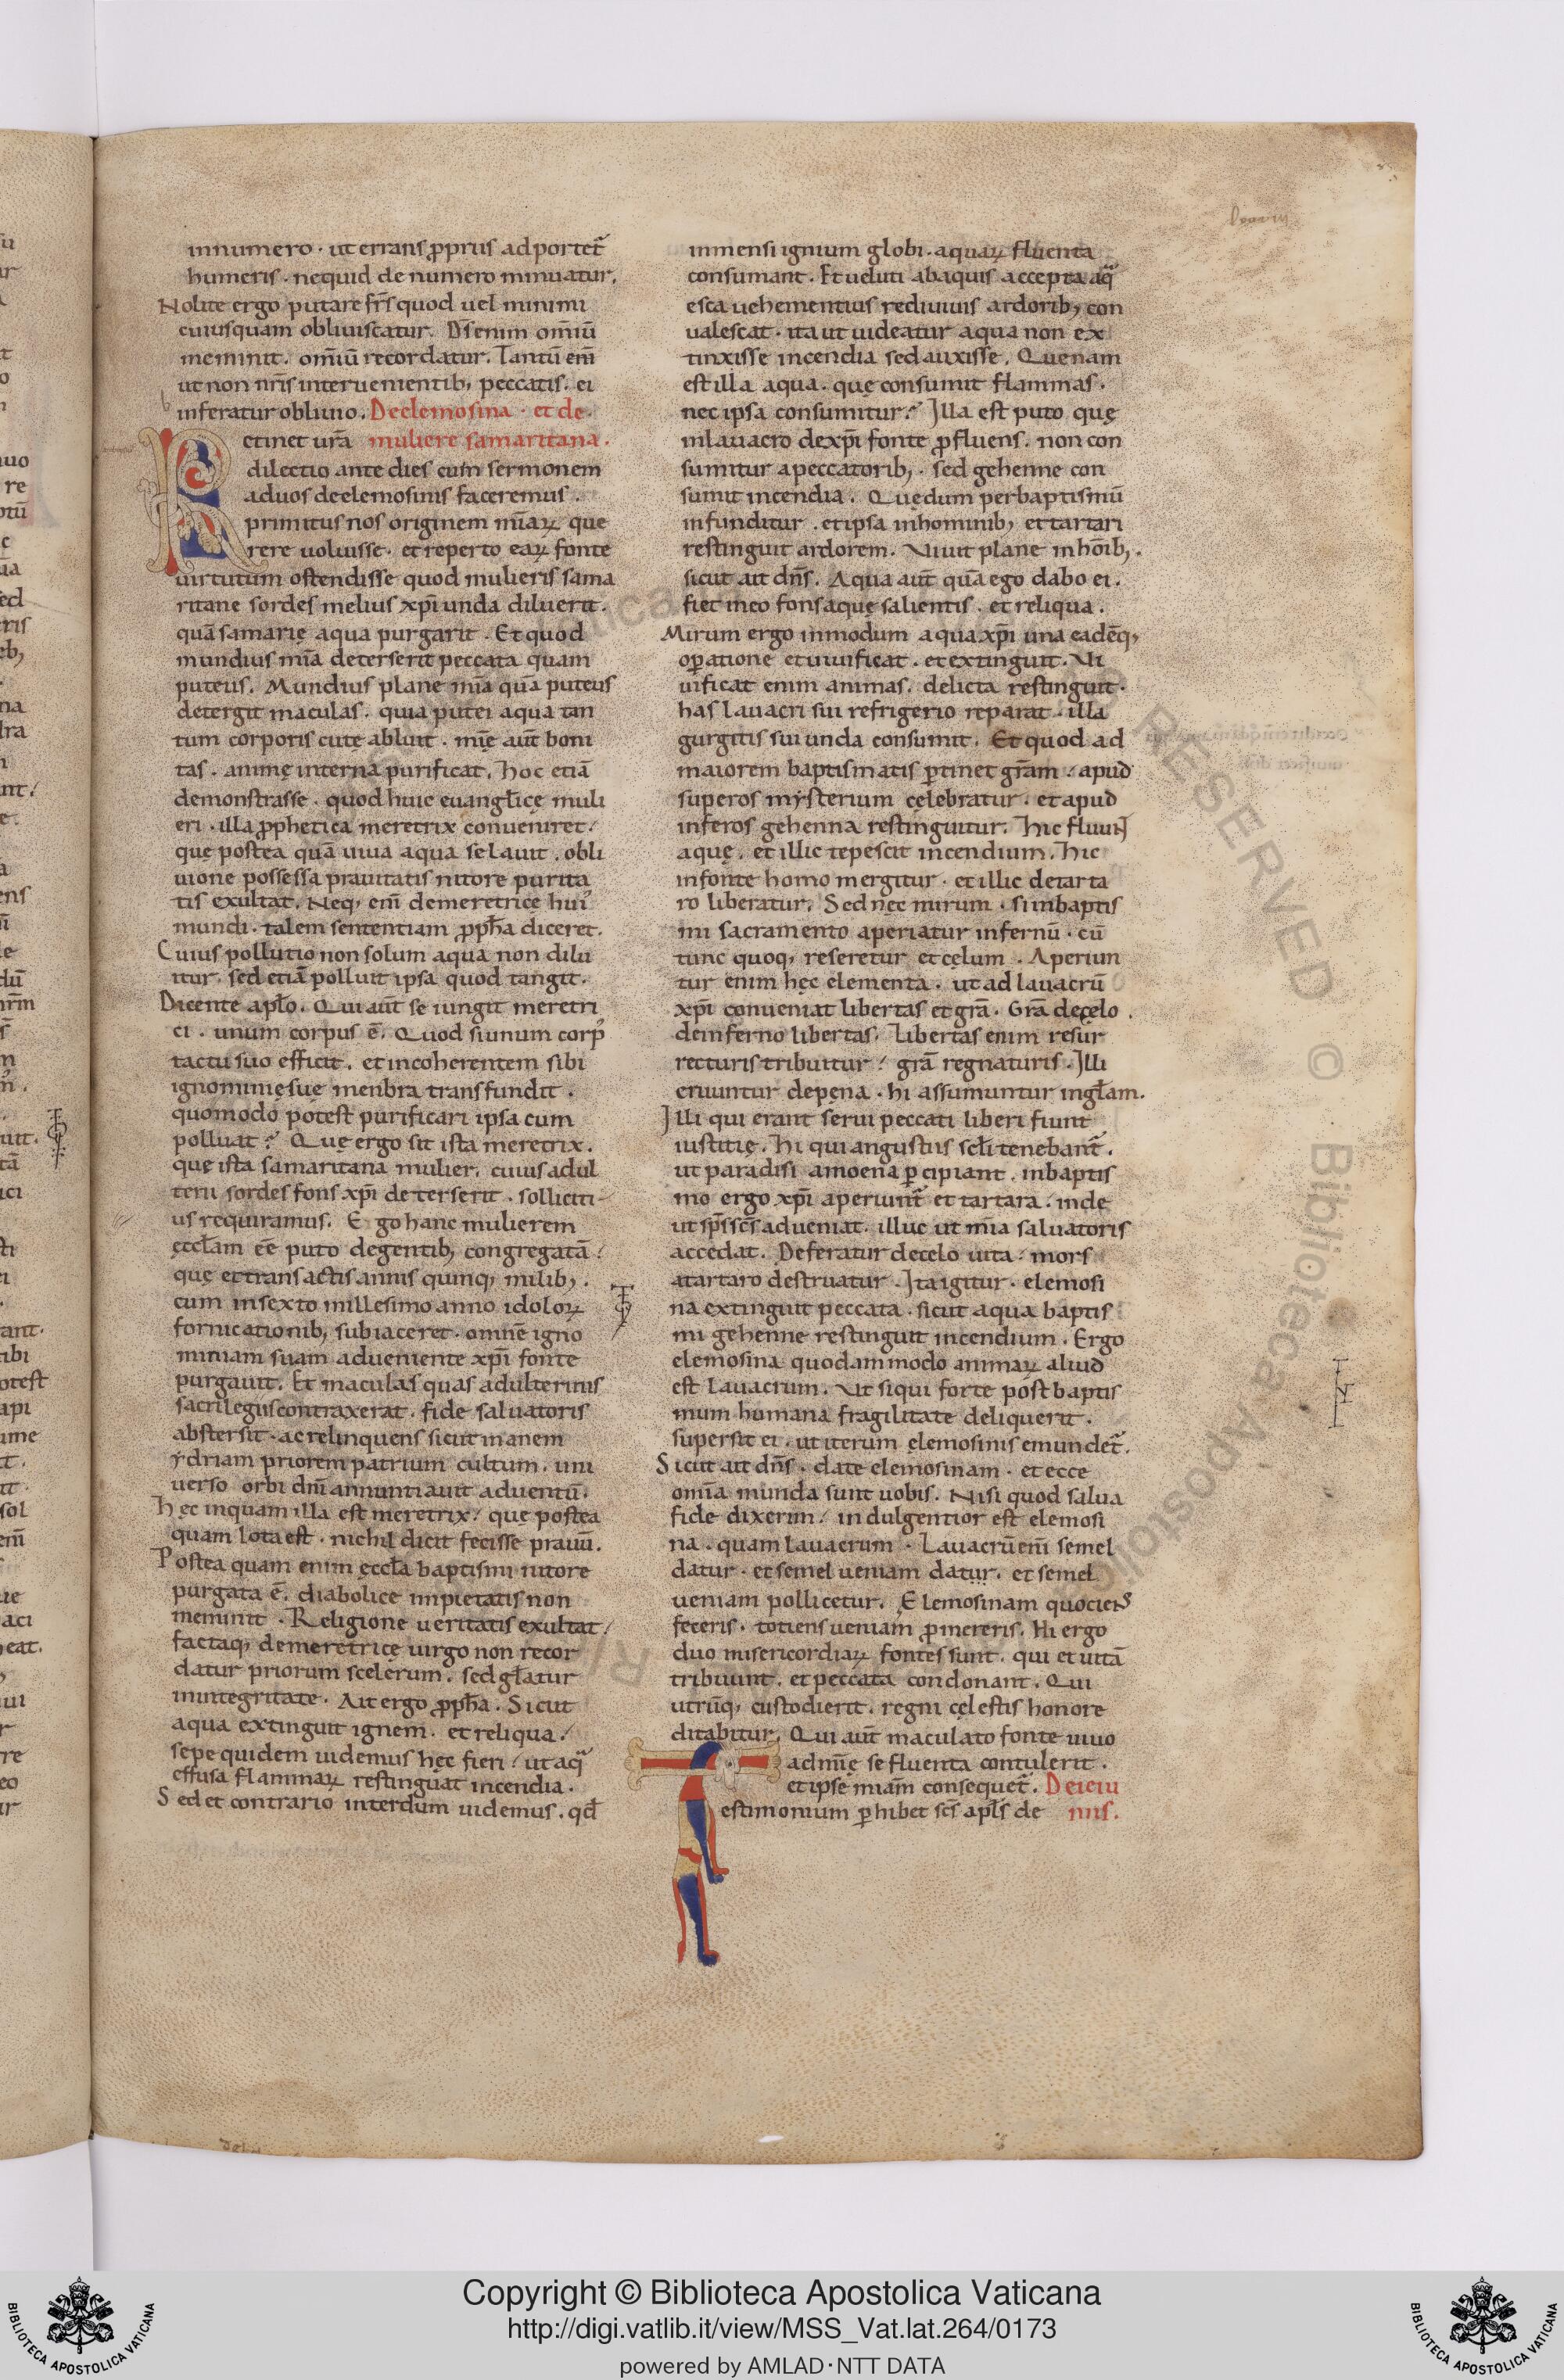 innumero · ut errans ꝓprus adportet᷑
humeris · nequid de numero minuatur.
Nolite ergo putare fr̄s quod uel minimi
cuiusquam obliuiscatur. D̄s enim om̄iū
meminit. om̄iū recordatur. Tantū em̄
ut non nr̄is interuenientib; peccatis. ei
inferatur obliuio. De elemosina · et de
muliere samaritana.
Retinet ur̄a
dilectio ante dies cum sermonem
ad uos de elemosinis faceremus.
primitus nos originem mīaꝝ que
rere uoluisse. et reperto eaꝝ fonte
uirtutum ostendisse quod mulieris sama
ritane sordes melius xp̄i unda diluerit.
quā samarię aqua purgarit. Et quod
mundius mīa deterserit peccata quam
puteus. Mundius plane mīa quā puteus
detergit maculas. quia putei aqua tan
tum corporis cutę abluit. mīę aut̄ boni
tas. animę interna purificat. hoc etiā
demonstrasse. quod huic euangl̄icę muli
eri. illa ꝓphetica meretrix conueniret.
quę postea quā uiua aqua se lauit. obli
uione possessa prauitatis nitore purita
tis exultat. Neq; em̄ de meretrice hui᷒
mundi. talem sententiam ꝓpħa diceret.
Cuius pollutio non solum aqua non dilu
itur. sed etiā polluit ipsa quod tangit.
Dicente apl̄o. Qui aut̄ se iungit meretri
ci. unum corpus ē. Quod si unum corp᷒
tactu suo efficit. et incoherentem sibi
ignominię suę menbra transfundit.
quomodo potest purificari ipsa cum
polluat? Quę ergo sit ista meretrix.
que ista samaritana mulier. cuius adul
terii sordes fons xp̄i deterserit. solliciti
us requiramus. Ego hanc mulierem
ęccl̄am eē puto degentib; congregatā.
quę et transactis annis quinq; milib;.
cum in sexto millesimo anno idoloꝝ
fornicationib; subiaceret. omnē igno
miniam suam adueniente xp̄i fonte
purgauit. Et maculas quas adulterinis
sacrilegiis contraxerat. fide saluatoris
abstersit. ac relinquens sicut inanem
ydriam priorem patrium cultum. uni
uerso orbi dn̄i annuntiauit aduentū.
Hęc inquam illa est meretrix. quę postea
quam lota est. nichil dicit fecisse prauū.
Postea quam enim ęccl̄a baptismi nitore
purgata ē. diabolice impietatis non
meminit. Religione ueritatis exultat.
factaq; de meretricę uirgo non recor
datur priorum scelerum. sed gl̄atur
in integritate. Ait ergo ꝓpħa. Sicut
aqua extinguit ignem. et reliqua.
sepe quidem uidemus hęc fieri. ut aqᷓ
effusa flammaꝝ restinguat incendia.
Sed et contrario interdum uidemus. qd̄
inmensi ignium globi. aquaꝝ fluenta
consumant. Et ueluti ab aquis accepta aqᷓ
esca uehementius rediuiuis ardorib; con
ualescat. ita ut uideatur aqua non ex
tinxisse incendia sed auxisse. Quenam
est illa aqua. quę consumit flammas.
nec ipsa consumitur? Illa est puto quę
in lauacro de xp̄i fonte ꝓfluens. non con
sumitur a peccatorib;. sed gehenne con
sumit incendia. Quędum per baptismū
infunditur. et ipsa in hominib; et tartari
restinguit ardorem. Viuit plane in hoīb;.
sicut ait dn̄s. Aqua aut̄ quā ego dabo ei.
fiet in eo fons aquę salientis. et reliqua.
Mirum ergo inmodum aqua xp̄i una eadēq;
oꝑatione et uiuificat. et extinguit. Vi
uificat enim animas. delicta restinguit.
has lauacri sui refrigerio reparat. illa
gurgitis sui unda consumit. Et quod ad
maiorem baptismatis ꝑtinet grām. apud
superos mysterium cęlebratur. et apud
inferos gehenna restinguitur. Hic fluunt
aquę. et illic tepescit incendium. Hic
in fonte homo mergitur. et illic de tarta
ro liberatur. Sed nec mirum. si in baptis
mi sacramento aperiatur infernū. cū
tunc quoq; reseretur et cęlum. Aperiun
tur enim hęc elementa. ut ad lauacrū
xp̄i conueniat libertas et grā. Grā de cęlo.
de inferno libertas. Libertas enim resur
recturis tribuitur. grā regnaturis. Illi
eruuntur de pena. hi assumuntur in gl̄am.
Illi qui erant serui peccati liberi fiunt
iustitię. Hi qui angustiis scl̄i tenebant᷑.
ut paradisi amoena ꝑcipiant. in baptis
mo ergo xp̄i aperiunt᷑ et tartara. inde
ut sp̄s sc̄s adueniat. illuc ut mīa saluatoris
accedat. Deferatur de celo uita. mors
a tartaro destruatur. Ita igitur. elemosi
na extinguit peccata. sicut aqua baptis
mi gehenne restinguit incendium. Ergo
elemosina quodammodo animaꝝ aliud
est lauacrum. Vt siqui forte post baptis
mum humana fragilitate deliquerit.
supersit ei. ut iterum ęlemosinis emundet᷑.
Sicut ait dn̄s. date elemosinam. et ecce
omīa munda sunt uobis. Nisi quod salua
fide dixerim. indulgentior est elemosi
na. quam lauacrum. Lauacrū em̄ semel
datur. et semel ueniam datur. et semel
ueniam pollicetur. Elemosinam quociens
feceris. totiens ueniam ꝓmereris. Hi ergo
duo misericordiaꝝ fontes sunt. qui et uitā
tribuunt. et peccata condonant. Qui
utrūq; custodierit. regni cęlestis honore
ditabitur. Qui aut̄ maculato fonte uiuo
ad mīę se fluenta contulerit.
et ipse miām consequet᷑. De ieiu
niis.
Testimonium ꝑhibet sc̄s apl̄s de
Copyright © Biblioteca Apostolica Vaticana
http://digi.vatlib.it/view/MSS_Vat.lat.264/0173
powered by AMLAD · NTT DATA
BIBLIOTECA APOSTOLICA VATICANA
BIBLIOTECA APOSTOLICA VATICANA